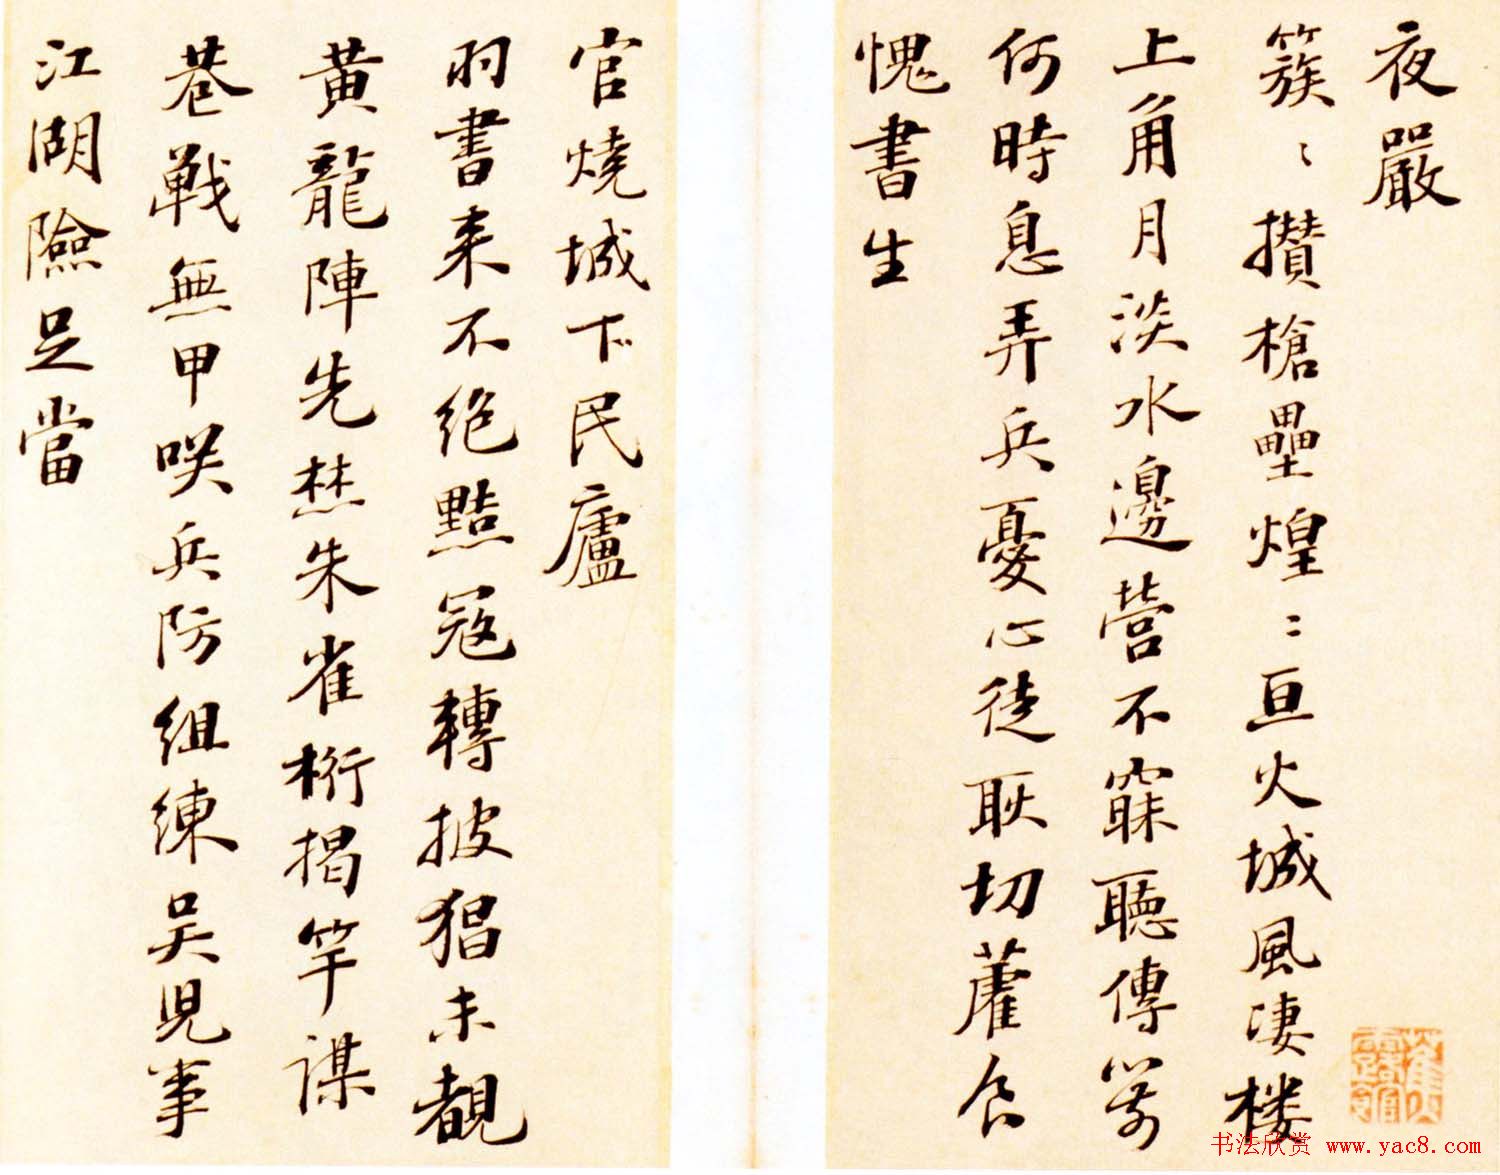 夜嚴
簇〻攢槍壘煌〻亘火城風淒樓
上角月淡水邊營不寐聽傳
何時息弄兵憂心徒耿切藿食
愧書生
官燒城下民廬
羽書來不絕黠寇轉披猖未覩
黃龍陣先焚朱雀桁揭竿謀
巷戰無甲咲兵防組練吳兒事
江湖險足當
书法欣赏 www.yac8.com